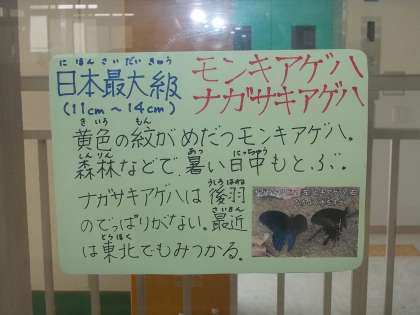 にほんさいだいきゅう
日本最大級
(11cm～14cm)
モンキアゲハ
ナガサキアゲハ
きいろ もん
黄色の紋がめだつモンキアゲハ。
しんりん あつ にっちゅう
森林などで、暑い日中もと、ぶ。
うしろばね
ナガサキアゲハは後羽
さいきん
のでっぱりがない。最近
とうほく
は東北でもみつかる。